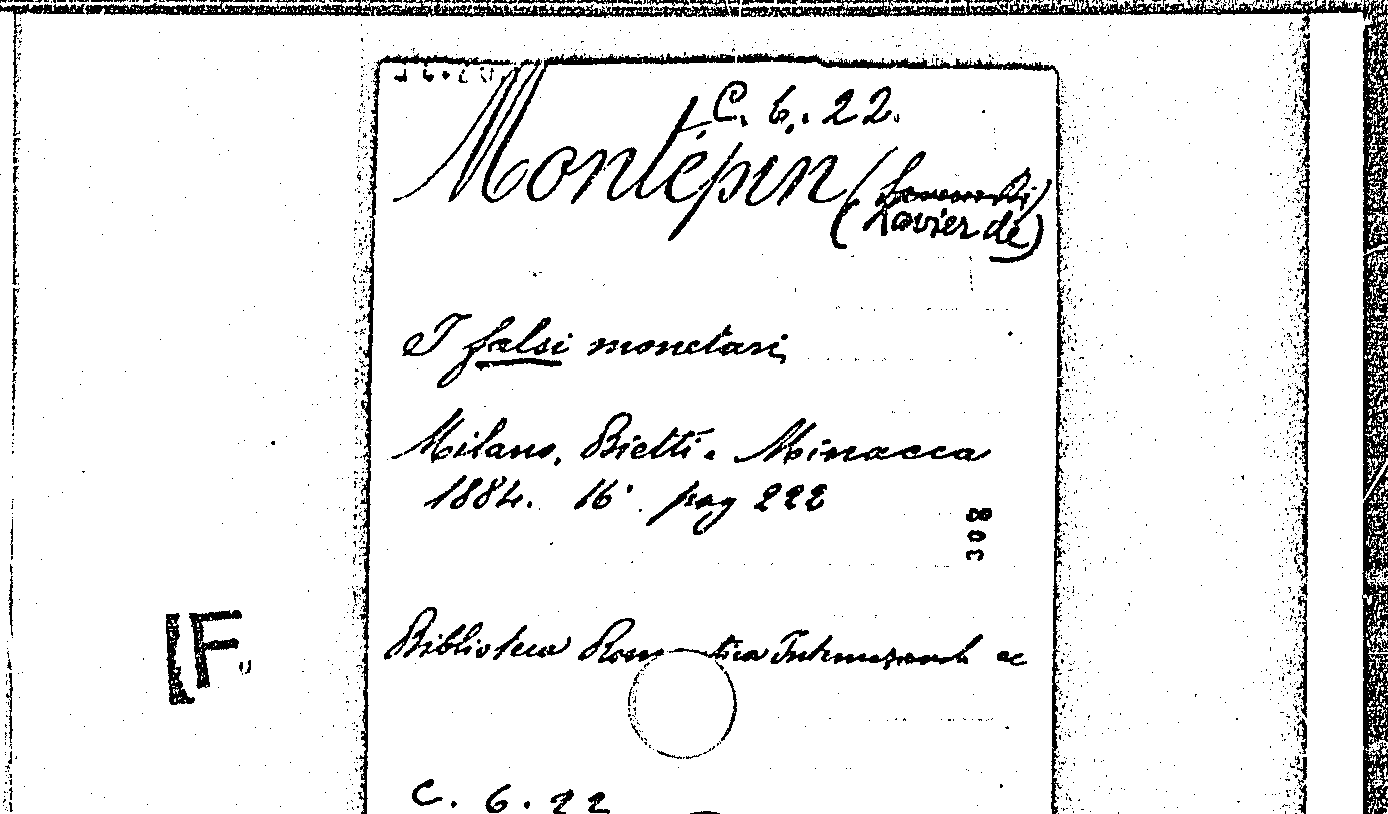 C. 6. 22.
Montépin
(Xavier de)
I falsi monetari
Milano, Bietti e Minacca
1884. 16° pag 222
308
Biblioteca Romantica ec
IF
C. 6. 22